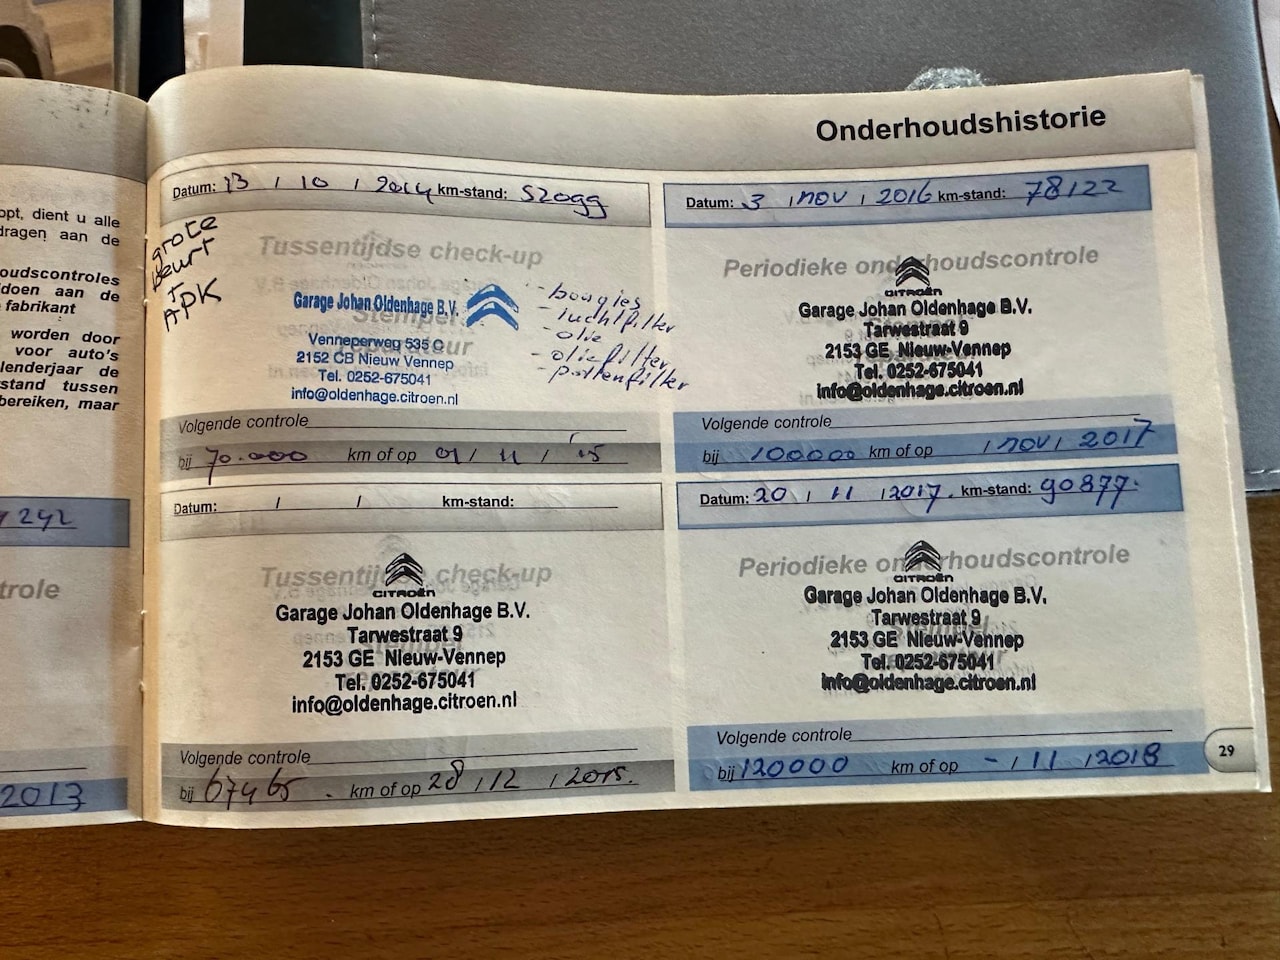 Onderhoudshistorie
opt, dient u alle
dragen aan de
oudscontroles
doen aan de
fabrikant
worden door
voor auto's
lenderjaar de
stand tussen
bereiken, maar
242
trole
2013
Datum: 13 / 10 / 2014 km-stand: 52099
grote
beurt
+
APK
Tussentijdse check-up
Garage Johan Oldenhage B.V.
Stempel
reparateur
Venneperweg 535 C
2152 CB Nieuw Vennep
Tel. 0252-675041
info@oldenhage.citroen.nl
- bougies
- luchtfilter
- olie
- oliefilter
- pollenfilter
Volgende controle
bij 70.000 km of op 01 / 11 / '15
Datum: / / km-stand:
Tussentijdse check-up
CITROËN
Garage Johan Oldenhage B.V.
Tarwestraat 9
2153 GE Nieuw-Vennep
Tel. 0252-675041
info@oldenhage.citroen.nl
Volgende controle
bij 67465 . km of op 28 / 12 / 2015.
Datum: 3 / nov / 2016 km-stand: 78122
Periodieke onderhoudscontrole
CITROËN
Garage Johan Oldenhage B.V.
Tarwestraat 9
2153 GE Nieuw-Vennep
Tel. 0252-675041
info@oldenhage.citroen.nl
Volgende controle
bij 100000 km of op / nov / 2017
Datum: 20 / 11 / 2017. km-stand: 90877.
Periodieke onderhoudscontrole
CITROËN
Garage Johan Oldenhage B.V.
Tarwestraat 9
2153 GE Nieuw-Vennep
Tel. 0252-675041
info@oldenhage.citroen.nl
Volgende controle
bij 120000 km of op - / 11 / 2018
29